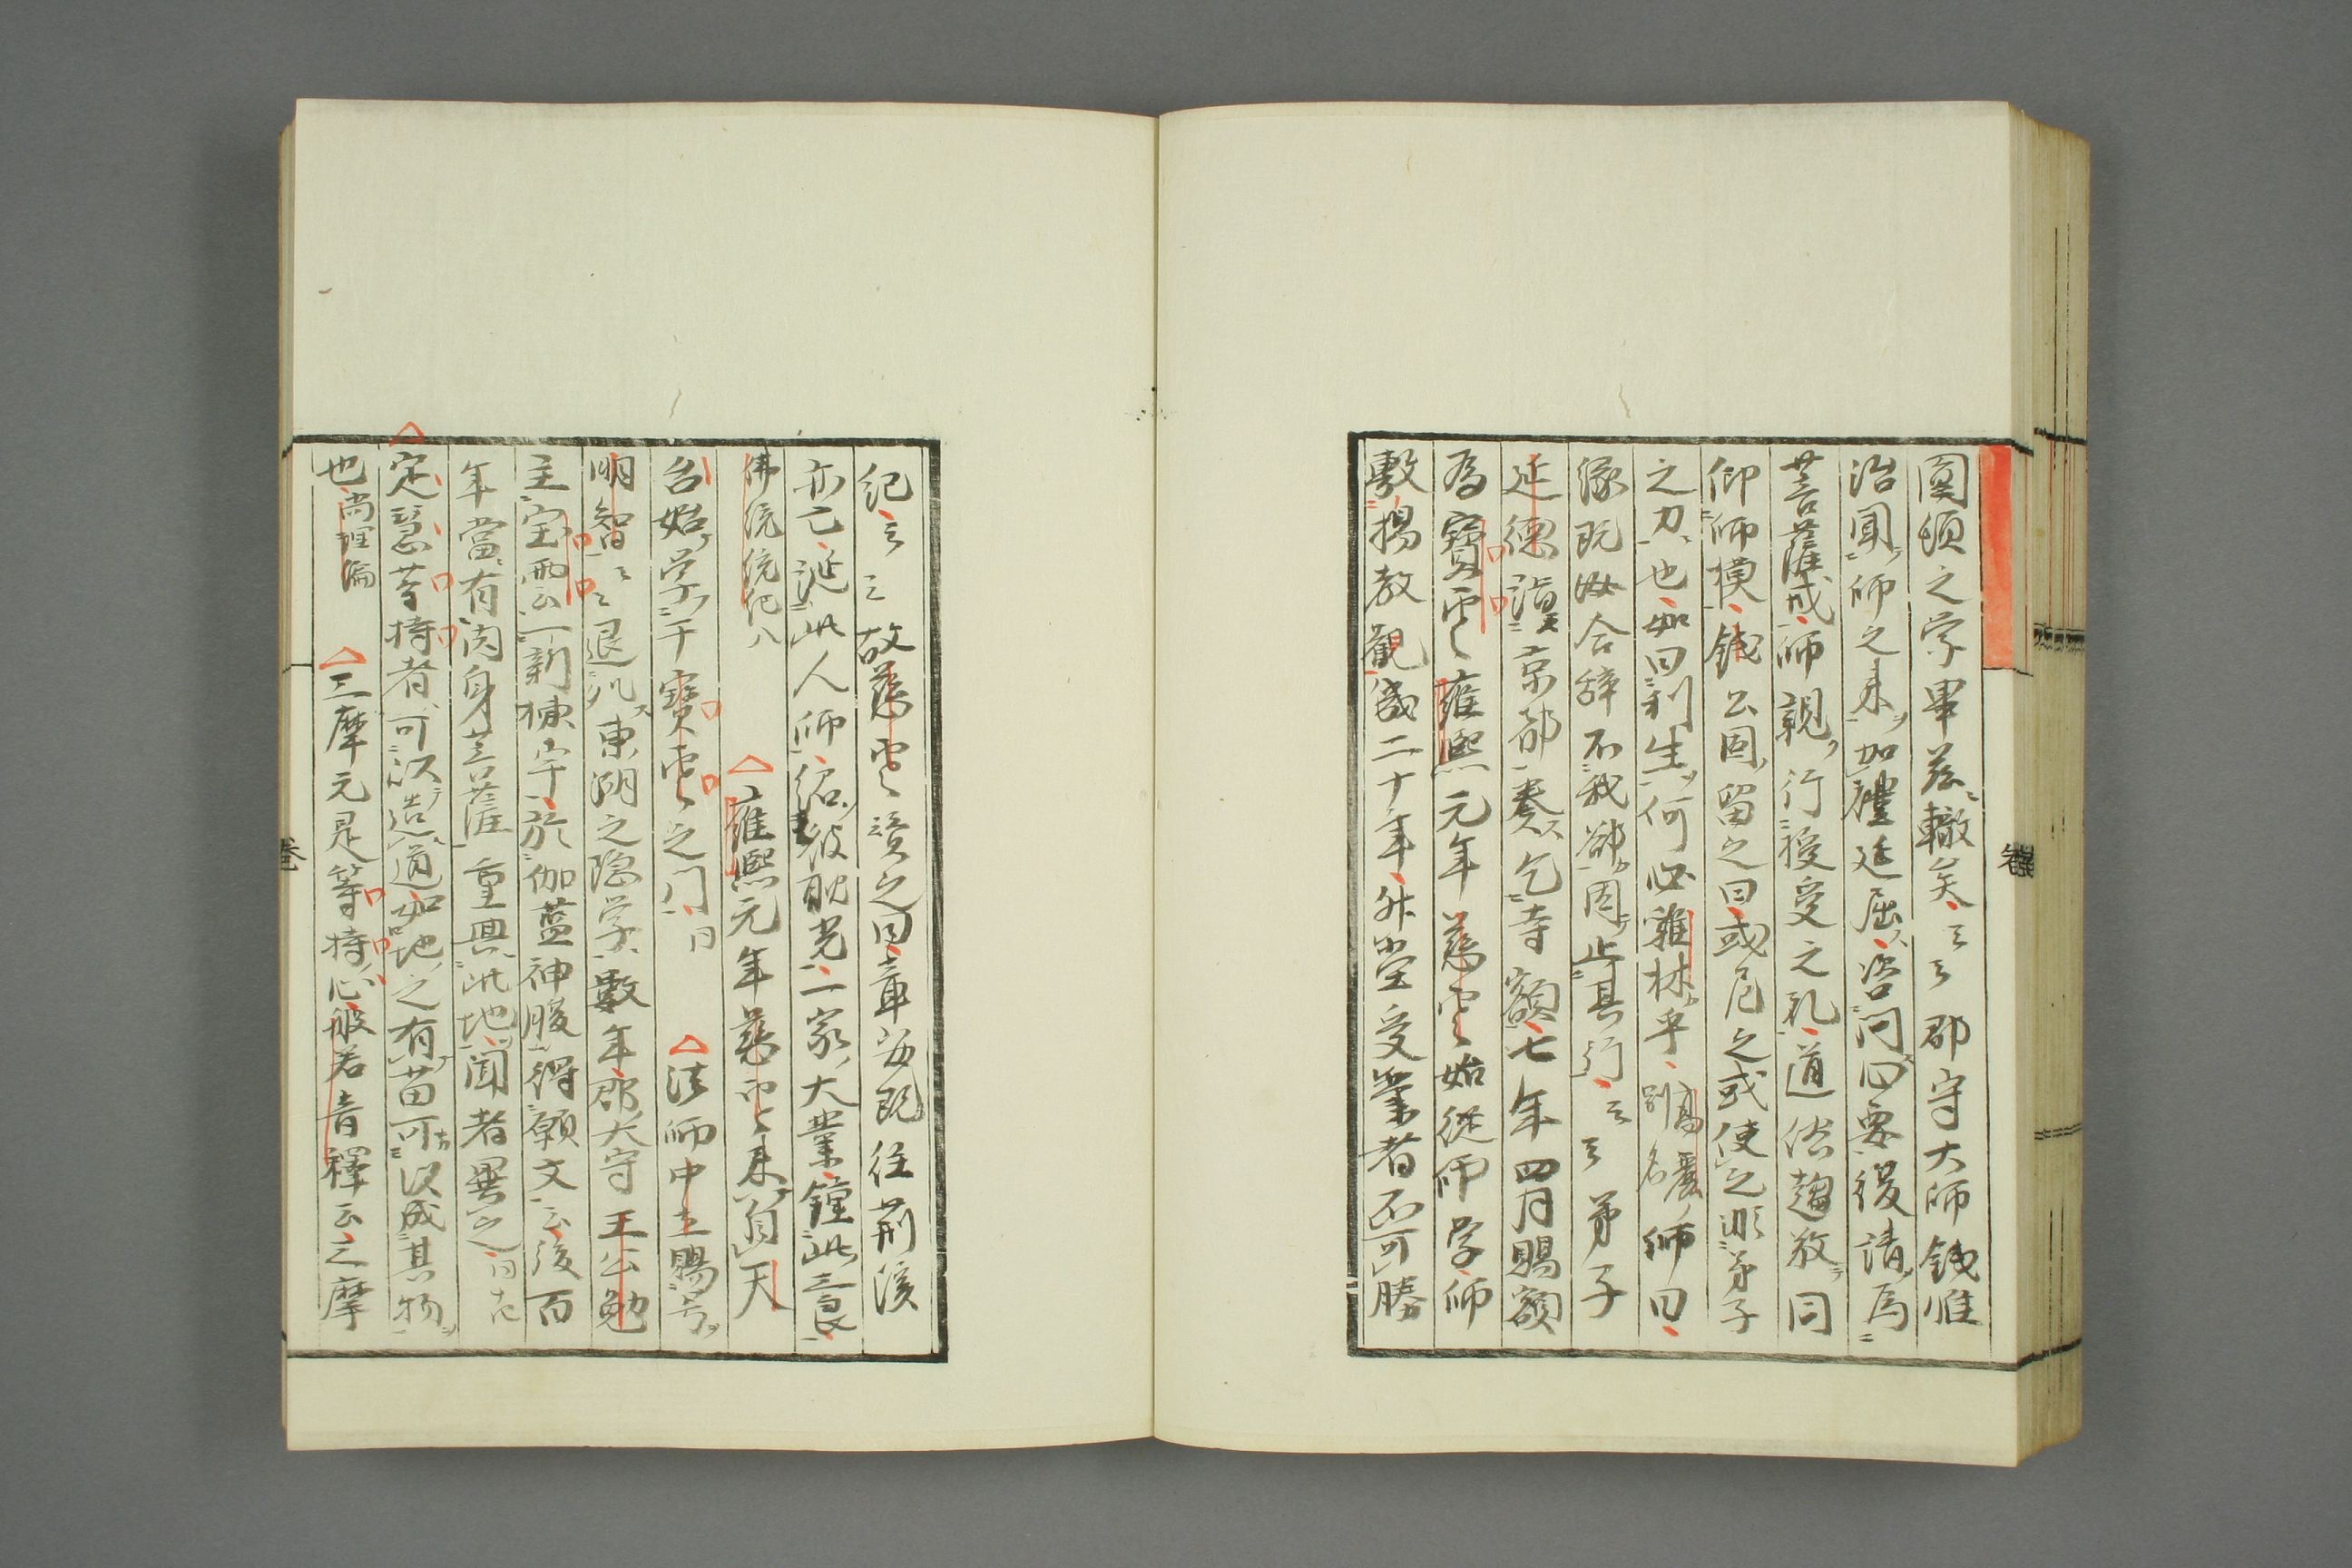 圓頓之学畢茲轍矣云云郡守大師錢惟
治聞師之来加禮延屈咨問心要復請爲
菩薩戒師親行授受之礼道俗趨敬同
仰師模錢公固留之曰或尼之或使之非弟子
之力也如曰利生何必雞林乎高麗別名師曰
緣既汝合辞不我却因止其行云云弟子
延德詣京都奏乞寺額七年四月賜額
為寶雲雍熙元年慈雲始從師学師
敷揚教觀歲二十年升堂受業者不可勝
紀云云故慈雲讃之曰章安既往荊溪
亦亡誕此人師紹彼耿光二家大業鍾此三良
佛統統紀八
雍熙元年慈雲来自天
台始学于寶雲之门曰
法師中立賜号
明智云云退処東湖之隐学數年郡大守王公勉
主宝雲一新棟宇於伽藍神腹得願文云後百
年當有肉身菩薩重興此地聞者異之
定慧等持者可以造道如地之有苗可以成其物
也尚理編
三摩元是等持心般若音釋云三摩